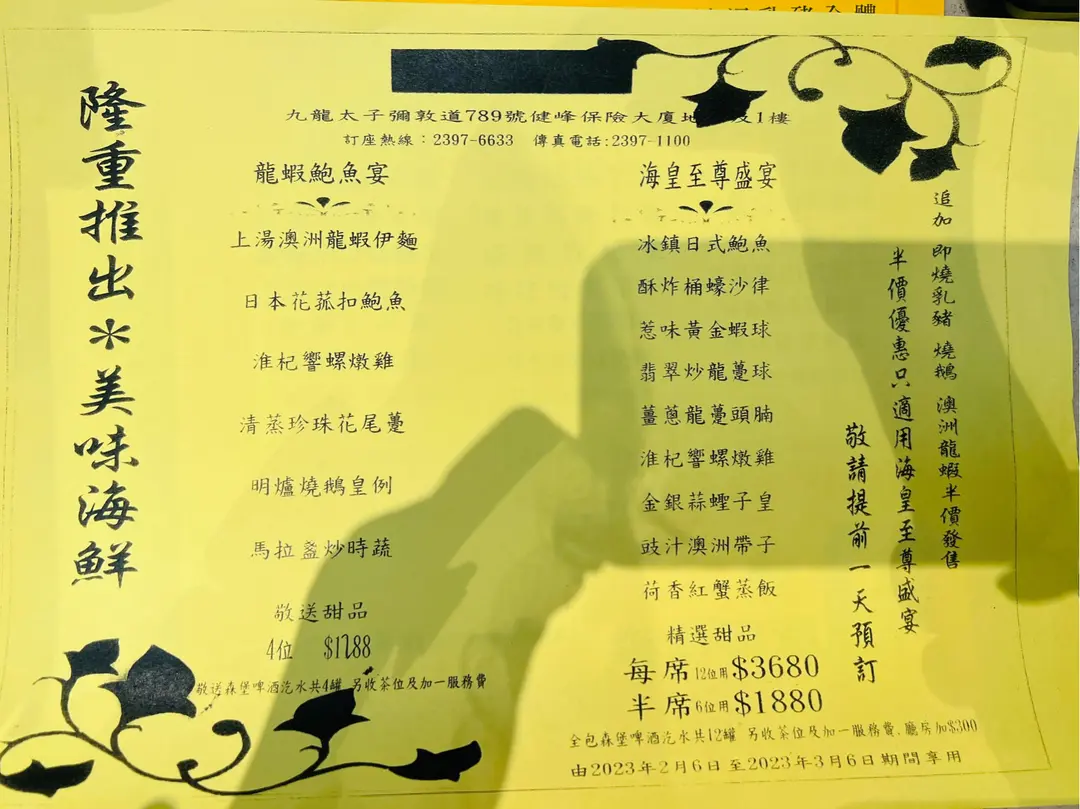 隆重推出＊美味海鮮
九龍太子彌敦道789號健峰保險大廈地 及1樓
訂座熱線：2397-6633 傳真電話:2397-1100
龍蝦鮑魚宴
上湯澳洲龍蝦伊麵
日本花菰扣鮑魚
淮杞響螺燉雞
清蒸珍珠花尾躉
明爐燒鵝皇例
馬拉盞炒時蔬
敬送甜品
4位 $1288
敬送森堡啤酒汽水共4罐 另收茶位及加一服務費
海皇至尊盛宴
冰鎮日式鮑魚
酥炸桶蠔沙律
惹味黃金蝦球
翡翠炒龍躉球
薑蔥龍躉頭腩
淮杞響螺燉雞
金銀蒜蟶子皇
豉汁澳洲帶子
荷香紅蟹蒸飯
精選甜品
每席12位用$3680
半席6位用$1880
全包森堡啤酒汽水共12罐 另收茶位及加一服務費.廳房加$300
由2023年2月6日至2023年3月6日期間享用
追加 即燒乳豬 燒鵝 澳洲龍蝦半價發售
半價優惠只適用海皇至尊盛宴
敬請提前一天預訂